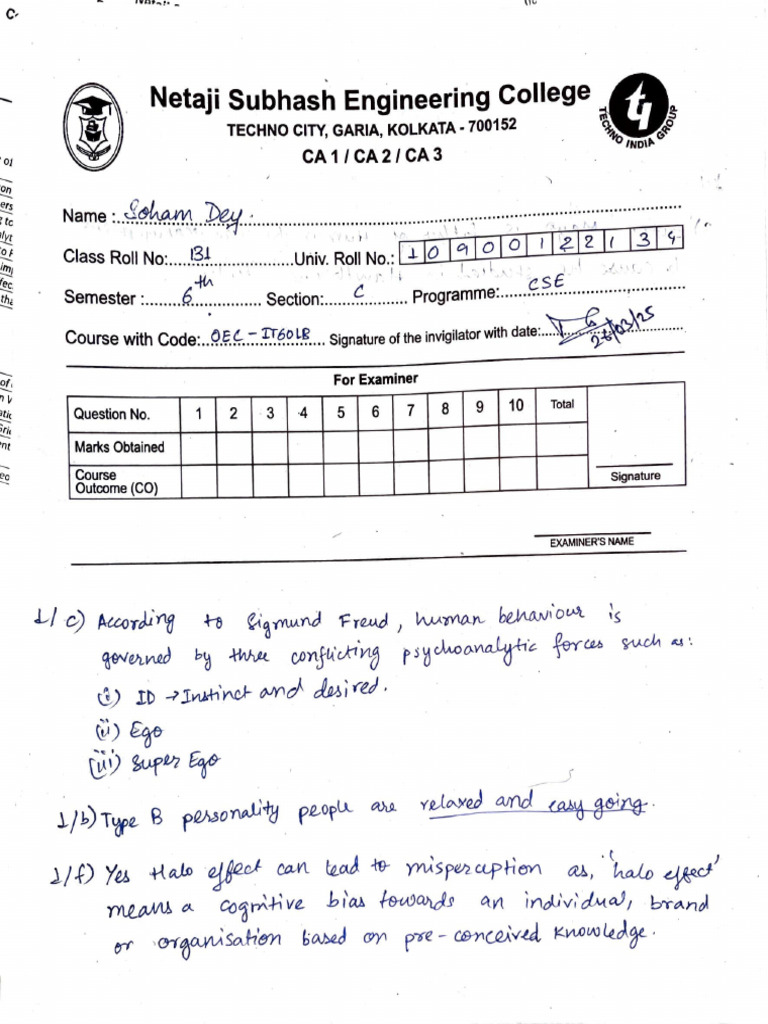 Netaji Subhash Engineering College
TECHNO CITY, GARIA, KOLKATA - 700152
CA 1 / CA 2 / CA 3
TECHNO INDIA GROUP
Name : Soham Dey.
Class Roll No: 131 Univ. Roll No.: 10900122134
Semester : 6th Section: C Programme: CSE
Course with Code: OEC - IT601B Signature of the invigilator with date: 26/03/25
For Examiner
Question No. 1 2 3 4 5 6 7 8 9 10 Total
Marks Obtained
Course
Outcome (CO)
Signature
EXAMINER'S NAME
1/ c) According to Sigmund Freud, human behaviour is
governed by three conflicting psychoanalytic forces such as:
(i) ID → Instinct and desired.
(ii) Ego
(iii) Super Ego
1/b) Type B personality people are relaxed and easy going.
1/f) Yes Halo effect can lead to misperception as, 'halo effect'
means a cognitive bias towards an individual, brand
or organisation based on pre-conceived knowledge.